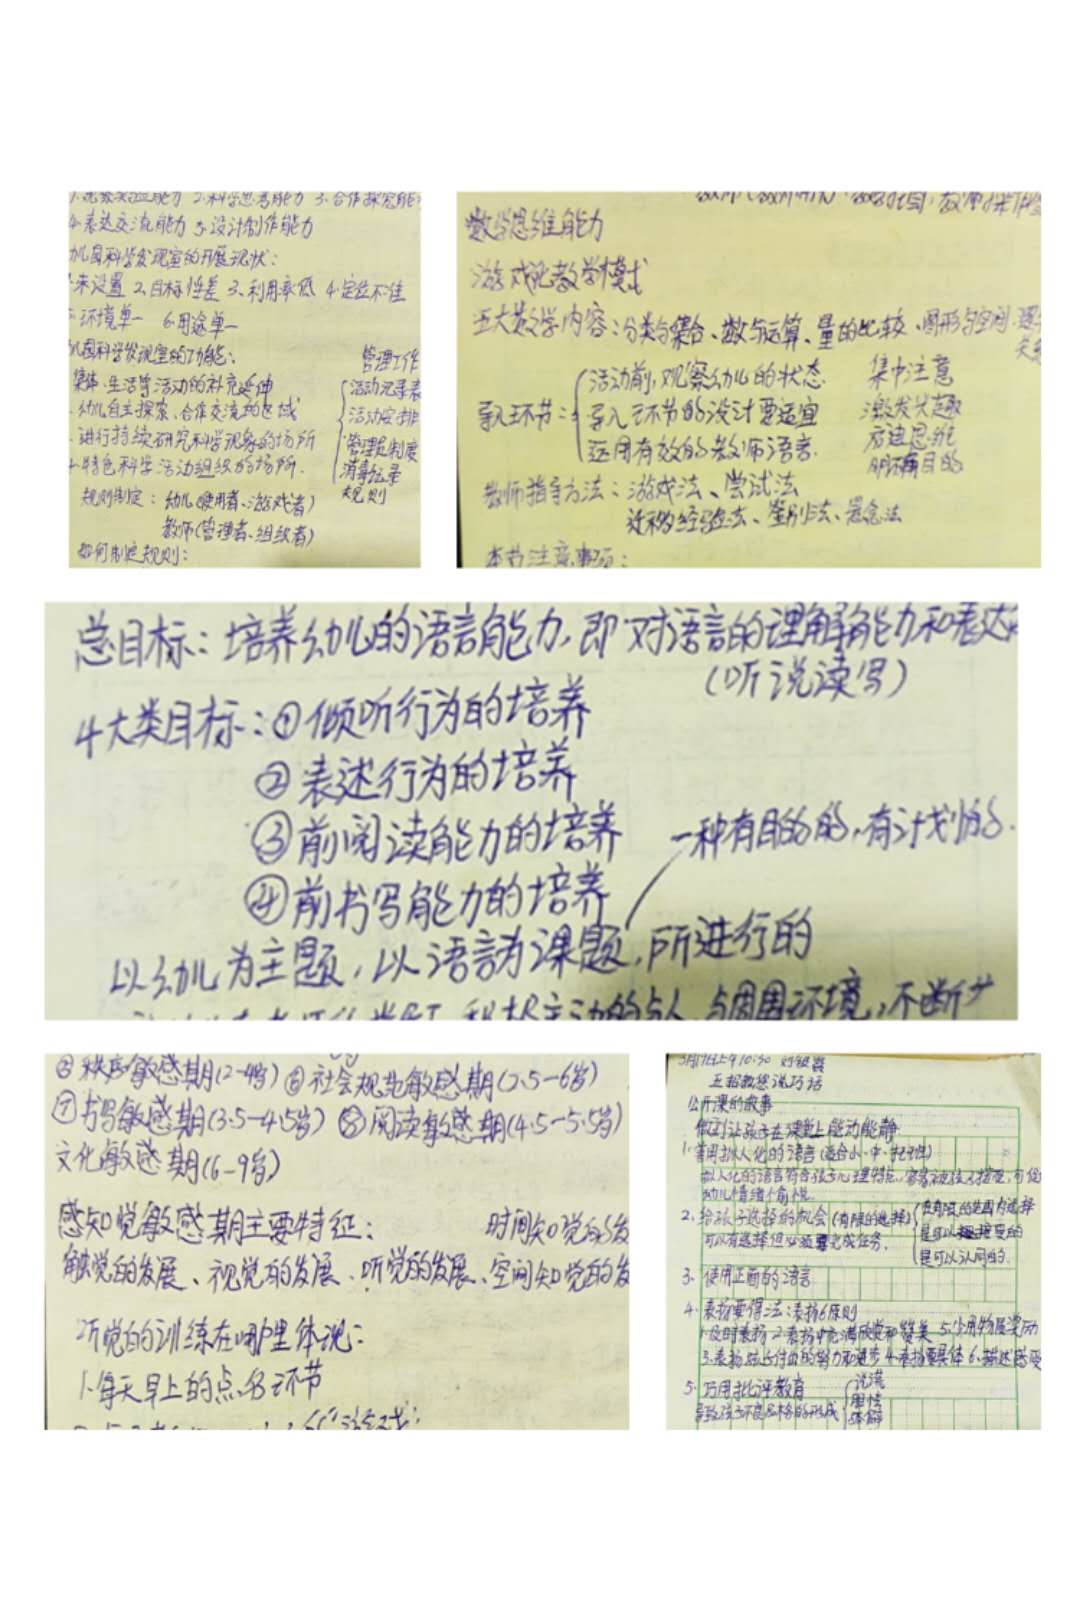 1.观察实验能力 2.科学思考能力 3.合作探究能
4.表达交流能力 5.设计制作能力
幼儿园科学发现室的开展现状：
1.未设置 2.目标性差 3.利用率低 4.定位不准
5.环境单一 6.用途单一
幼儿园科学发现室的功能：
集体、生活等活动的补充延伸
幼儿自主探索、合作交流的区域
进行持续研究科学现象的场所
4.特色科学活动组织的场所.
管理工作
活动记录表
活动安排
管理员制度
消毒记录
规则
规则制定：幼儿(使用者、游戏者)
教师(管理者、组织者)
如何制定规则：
数学思维能力
游戏化教学模式
五大数学内容：分类与集合、数与运算、量的比较、图形与空间、逻
关系
导入环节：
活动前,观察幼儿的状态
导入环节的设计要适宜
运用有效的教师语言.
集中注意
激发兴趣
启迪思维
明确目的
教师指导方法：游戏法、尝试法
迁移经验法、鉴别法、悬念法
本节注意事项：
总目标：培养幼儿的语言能力,即对语言的理解能力和表达
(听说读写)
4大类目标：①倾听行为的培养
②表述行为的培养
③前阅读能力的培养
一种有目的的,有计划的.
④前书写能力的培养
以幼儿为主题,以语言为课题,所进行的
主动的与人,与周围环境,不断
⑤秩序敏感期(2-4岁) ⑥社会规范敏感期(2.5-6岁)
⑦书写敏感期(3.5-4.5岁) ⑧阅读敏感期(4.5-5.5岁)
文化敏感期(6-9岁)
感知觉敏感期主要特征： 时间知觉的发
触觉的发展、视觉的发展、听觉的发展、空间知觉的发
听觉的训练在哪里体现：
1.每天早上的点名环节
游戏；
上午10:30
五招教您说巧话
公开课的故事
做到让孩子在课堂上能动能静
1.善用拟人化的语言(适合小、中、托班)
拟人化的语言符合孩子心理特征,容易被孩子接受,可使
幼儿情绪愉悦.
2.给孩子选择的机会(有限的选择)
可以有选择但必须要完成任务.
在有限的范围内选择
是可以接受的
是可以认同的.
3.使用正面的语言
4.表扬要得法:表扬6原则
1.及时表扬 2.表扬中充满欣赏和赞美 5.少用物质奖励
3.表扬孩子付出的努力和进步 4.表扬要具体 6.描述感受
5.巧用批评教育
导致孩子不良品格的形成
说谎
胆怯